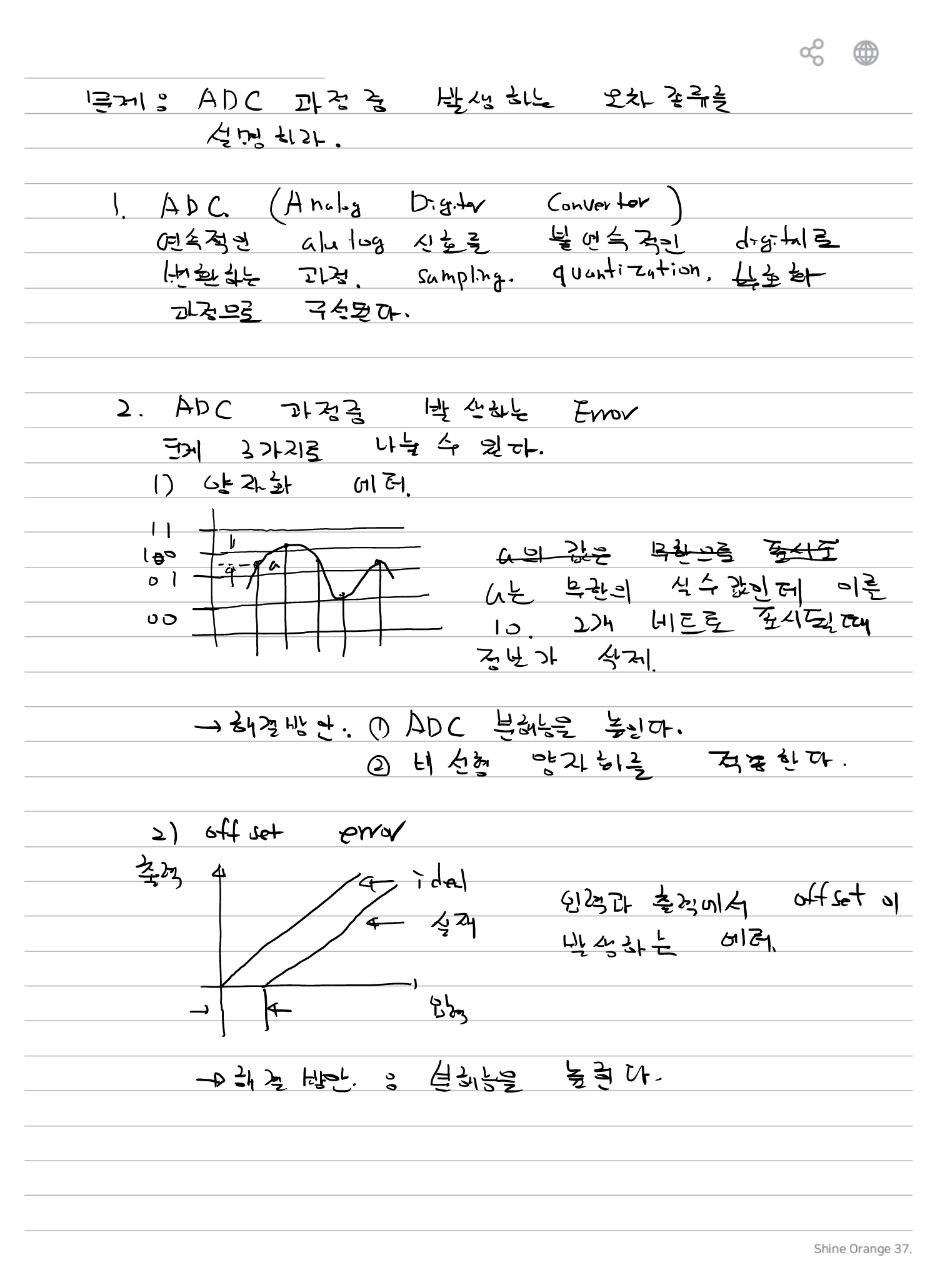 문제 : ADC 과정 중 발생하는 오차 종류를
설명하라.
1. ADC (Analog Digital Convertor)
연속적인 analog 신호를 불연속적인 digital로
변환하는 과정. sampling. quantization. 부호화
과정으로 구성된다.
2. ADC 과정중 발생하는 Error
크게 3가지로 나눌 수 있다.
1) 양자화 에러.
11
10
01
00
a
a의 값은 무한으로 표시도
a는 무한의 실수값인데 이를
10. 2개 비트로 표시될때
정보가 삭제.
→ 해결방안. ① ADC 분해능을 높인다.
② 비선형 양자화를 적용한다.
2) offset error
출력
ideal
실제
입력
입력과 출력에서 offset이
발생하는 에러.
→ 해결 방안 : 분해능을 높인다.
Shine Orange 37.